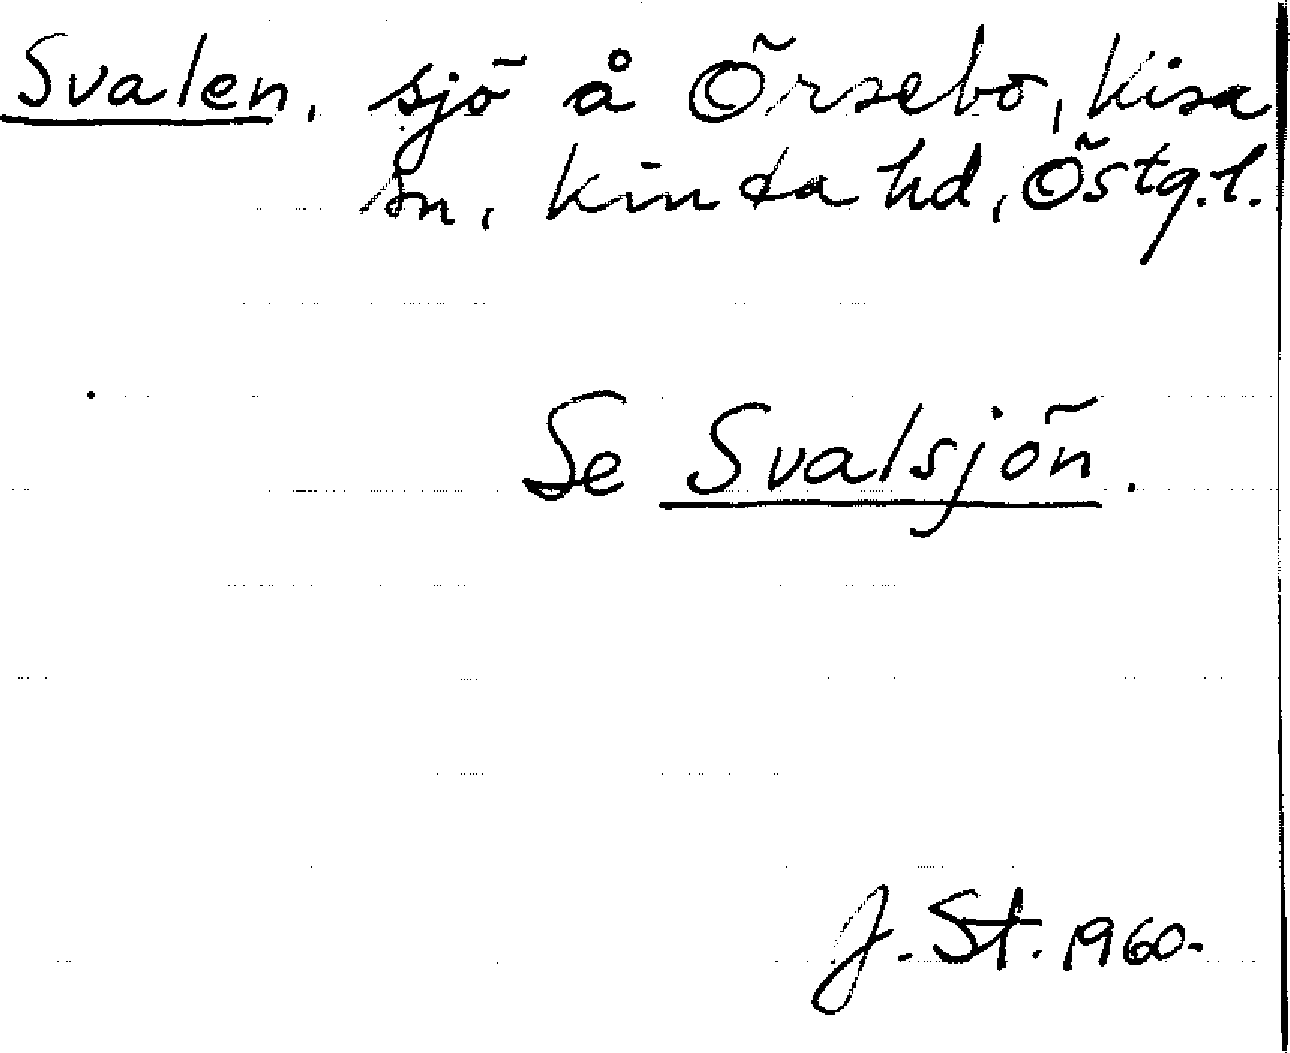 Svalen, sjö å Örsebo, Kisa
sn, Kinda hd, Östg.l.
Se Svalsjön.
J. St. 1960.